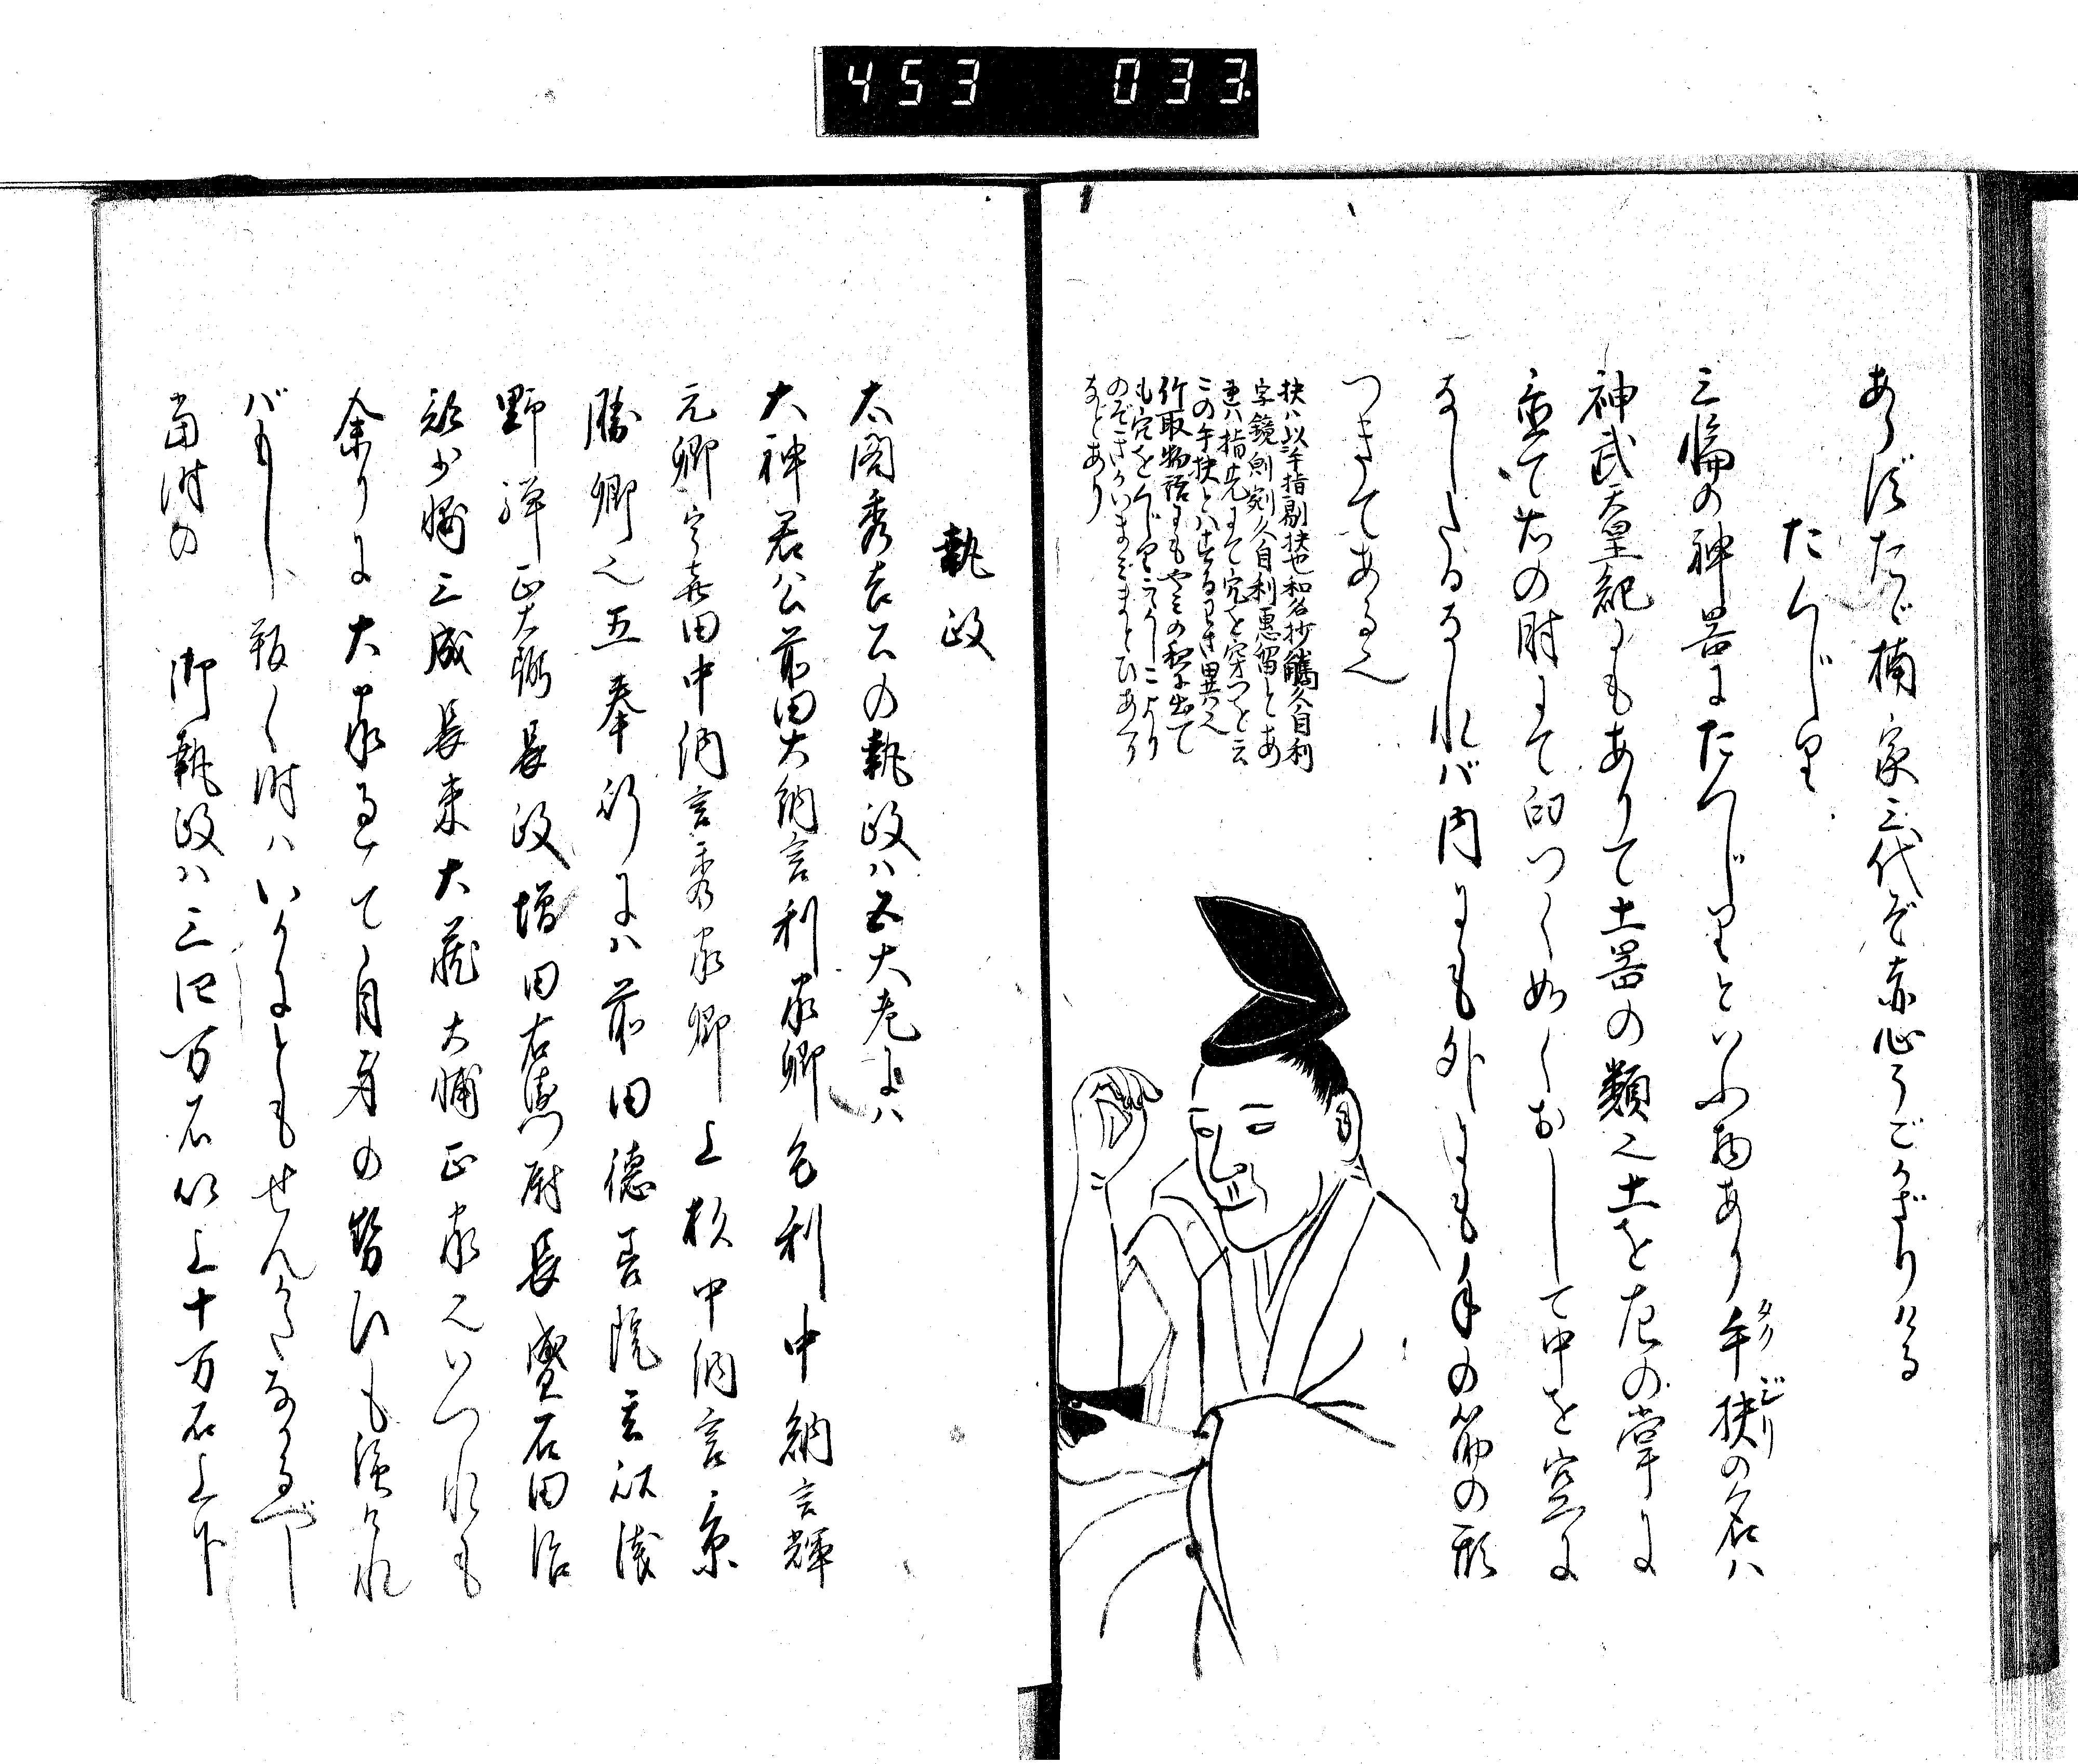 453 033.
あらずたゞ楠家三代ぞ赤心うごかざりける
たくじり
三輪の神器にたくじりといふ物あり手抉の名ハ
タク
じり
神武天皇紀にもありて土器の類也土を左の掌に
置て右の肘にて臼つくめくおしして中を空に
なしたるなれバ内にも外にも手の筋の形
つきてあるへ
抉ハ以手指剔抉也和名抄觿久自利
字鏡剜久自利恵留とあ
連ハ指先にて穴を穿つと云
この手抉とハするわさ異へ
竹取物語にもやミの夜に出て
も穴をくじりこゝかしこより
のぞきかいまミまとひあへり
などあり
執政
太閤秀吉公の執政ハ五大老にハ
大神君公前田大納言利家卿毛利中納言輝
元卿宇喜田中納言秀家卿上杉中納言景
勝卿也五奉行にハ前田徳善院玄以浅
野弾正大弼長政増田右衛門尉長盛石田治
部少輔三成長束大蔵大輔正家也いつれも
余りに大家過て自身の勢ひも強けれ
バもし叛く時ハいかにともせんかたなかるべし
当時の 御執政ハ三四万石以上十万石上下